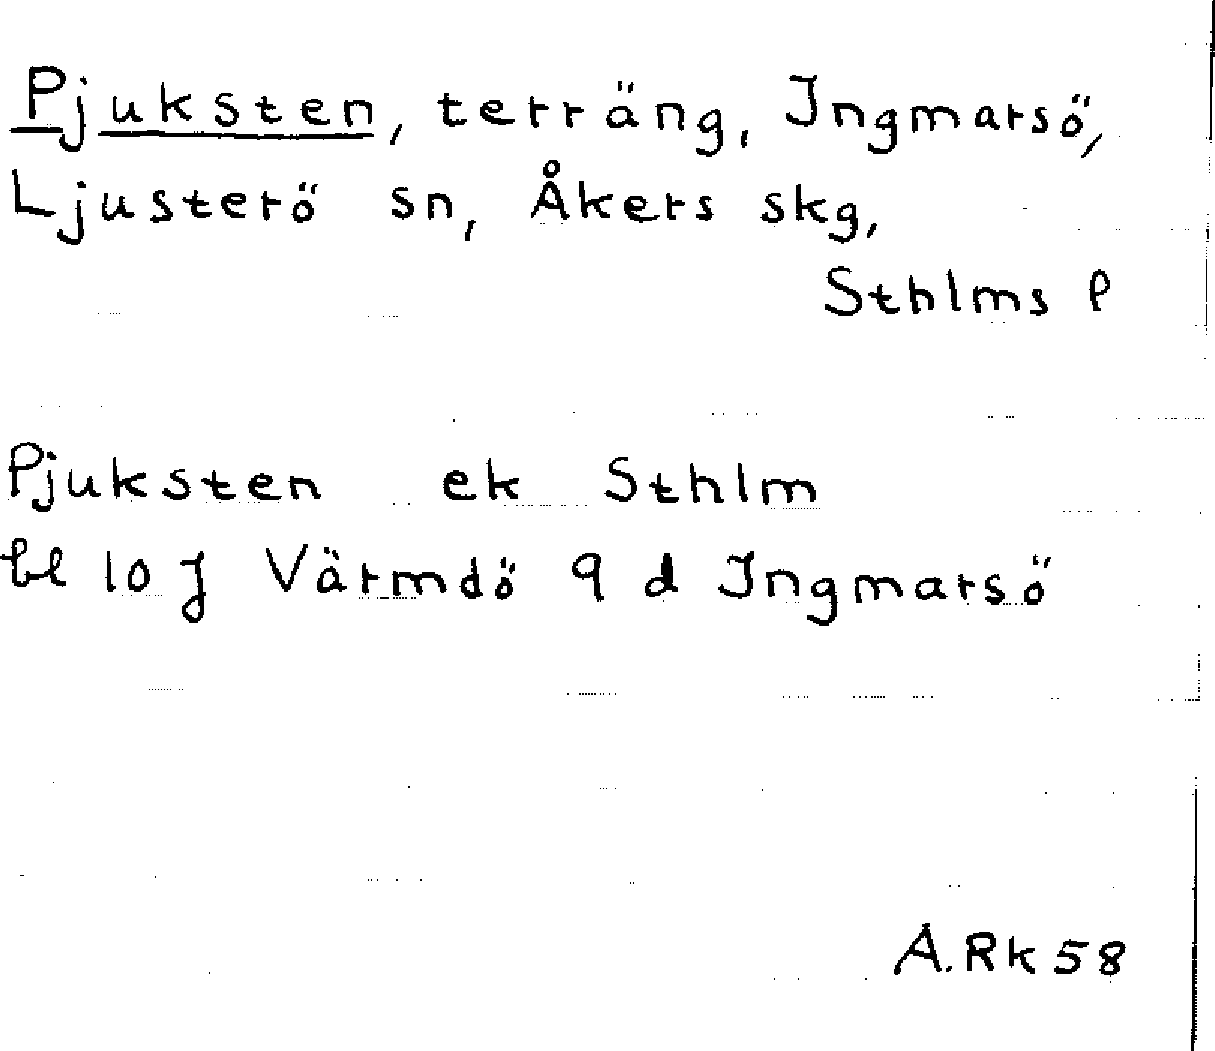 Pjuksten, terräng, Ingmarsö,
Ljusterö sn, Åkers skg,
Sthlms l
Pjuksten ek Sthlm
bl 10 J Värmdö 9 d Ingmarsö
A.Rk 58